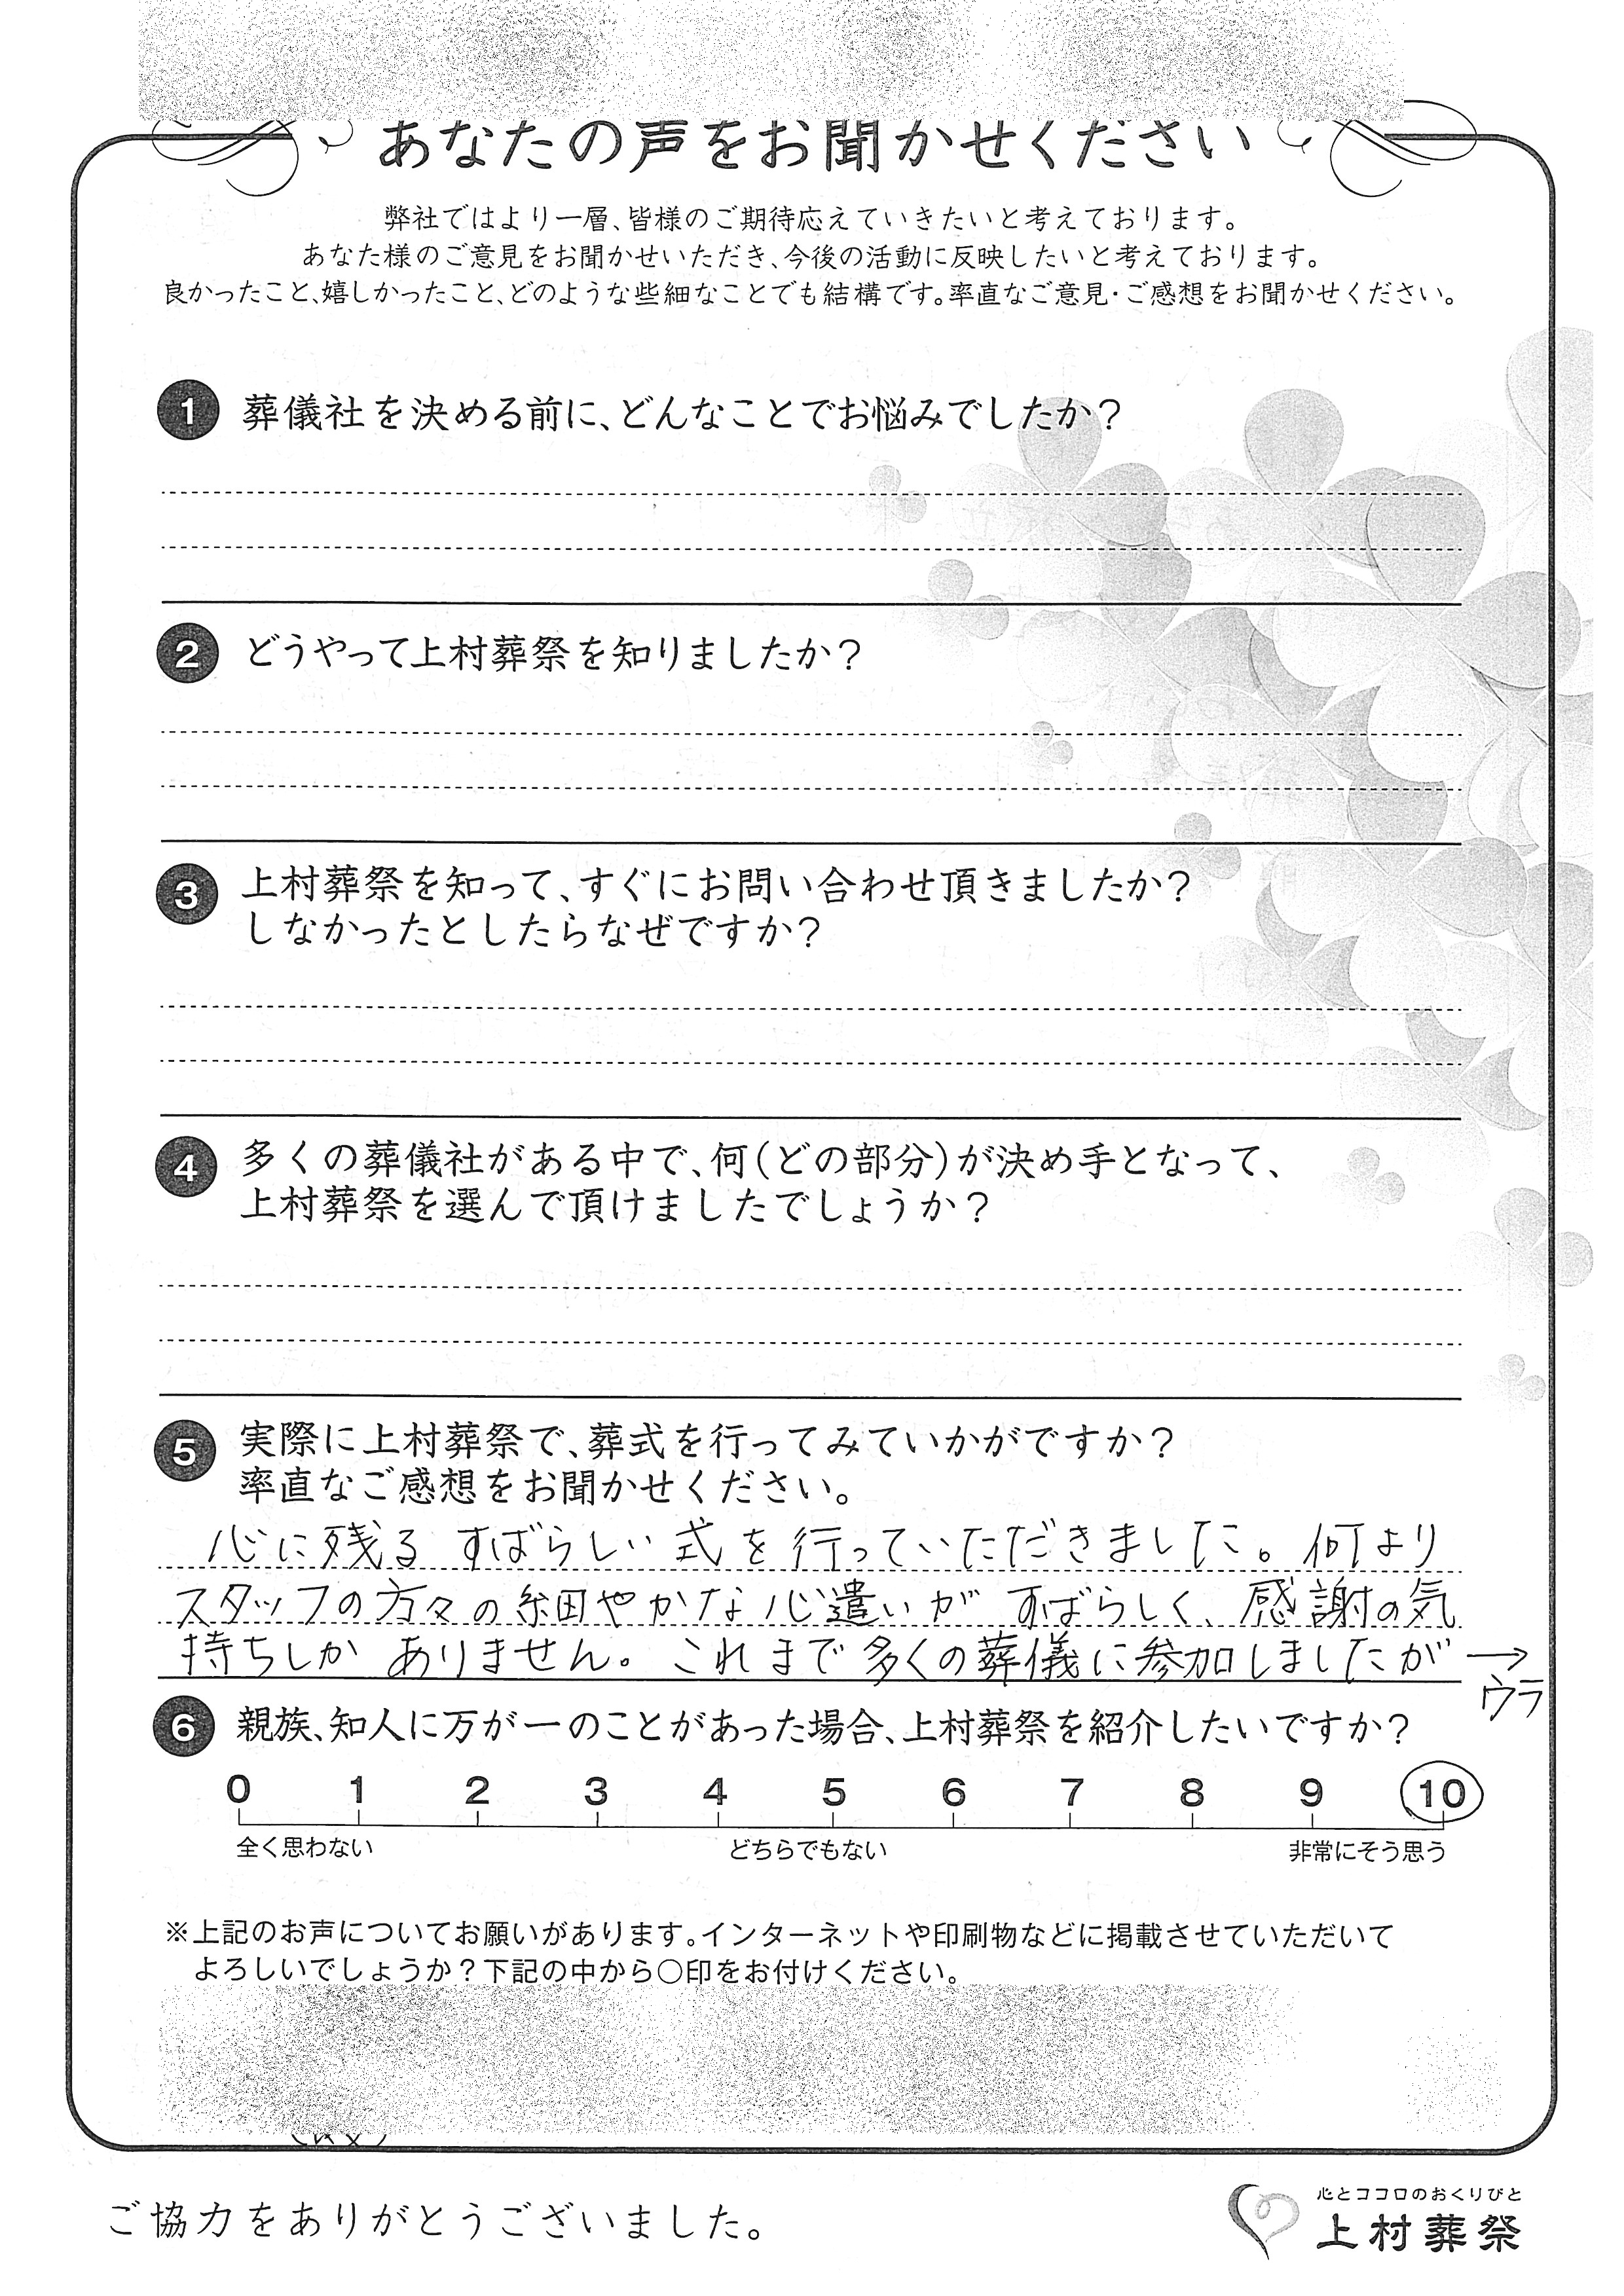 あなたの声をお聞かせください
弊社ではより一層、皆様のご期待応えていきたいと考えております。
あなた様のご意見をお聞かせいただき、今後の活動に反映したいと考えております。
良かったこと、嬉しかったこと、どのような些細なことでも結構です。率直なご意見・ご感想をお聞かせください。
1 葬儀社を決める前に、どんなことでお悩みでしたか?
2 どうやって上村葬祭を知りましたか?
3 上村葬祭を知って、すぐにお問い合わせ頂きましたか?
しなかったとしたらなぜですか?
4 多くの葬儀社がある中で、何(どの部分)が決め手となって、
上村葬祭を選んで頂けましたでしょうか?
5 実際に上村葬祭で、葬式を行ってみていかがですか?
率直なご感想をお聞かせください。
心に残る すばらしい式を行っていただきました。何より
スタッフの方々の細やかな心遣いが すばらしく、感謝の気
持ちしか ありません。これまで多くの葬儀に参加しましたが →
ウラ
6 親族、知人に万が一のことがあった場合、上村葬祭を紹介したいですか?
0 1 2 3 4 5 6 7 8 9 10
全く思わない どちらでもない 非常にそう思う
※上記のお声についてお願いがあります。インターネットや印刷物などに掲載させていただいて
よろしいでしょうか?下記の中から○印をお付けください。
ご協力をありがとうございました。
心とココロのおくりびと
上村葬祭